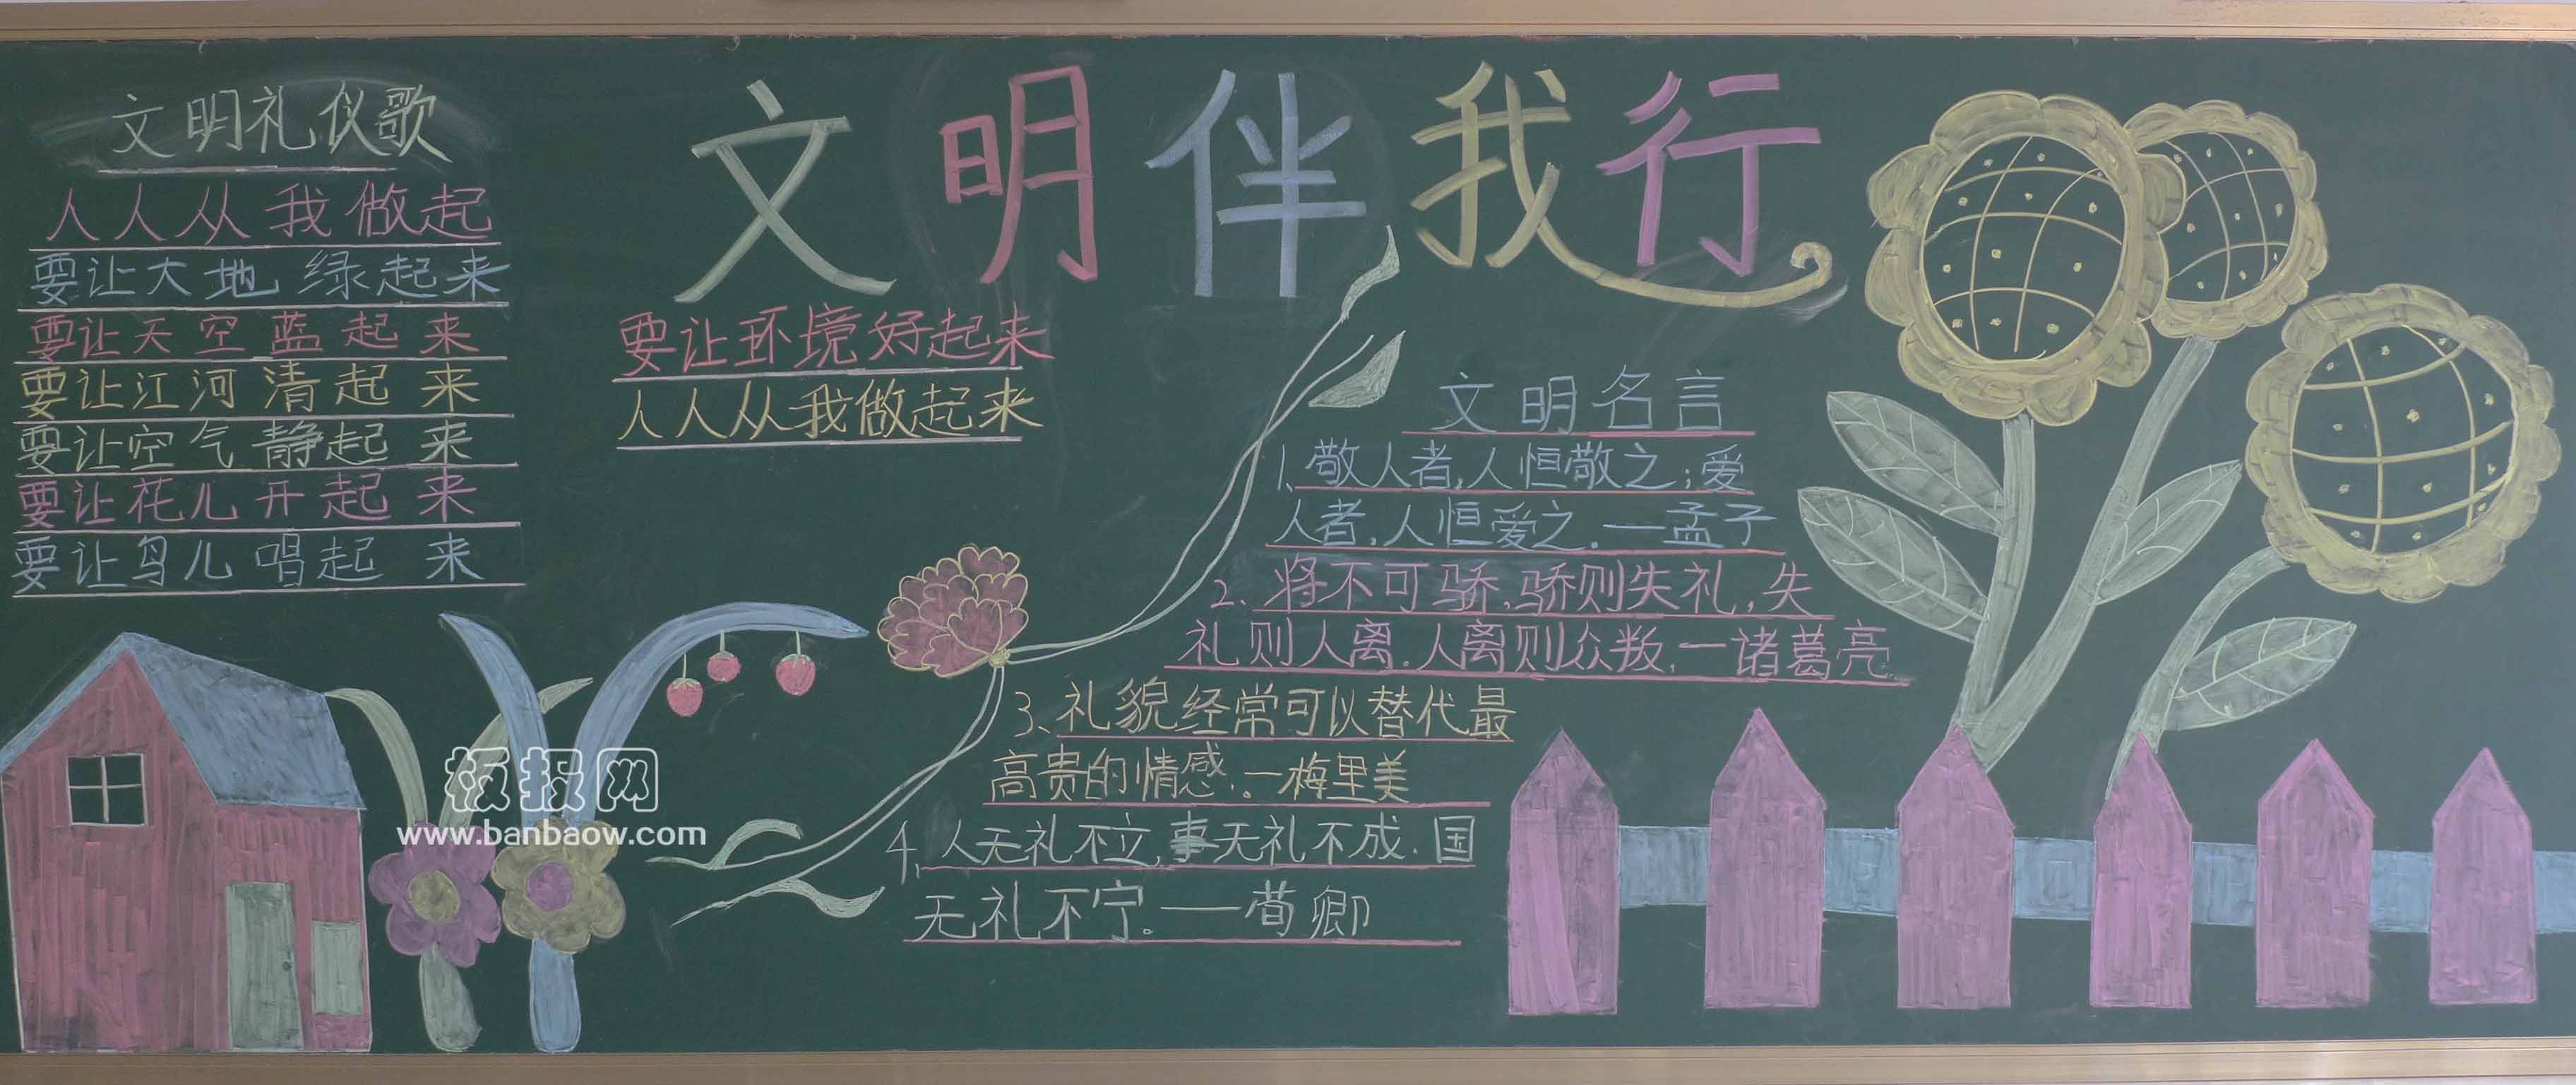 文明伴我行
文明礼仪歌
人人从我做起
要让大地绿起来
要让天空蓝起来
要让江河清起来
要让空气静起来
要让花儿开起来
要让鸟儿唱起来
要让环境好起来
人人从我做起来
文明名言
1、敬人者,人恒敬之;爱
人者,人恒爱之.—孟子
2、将不可骄,骄则失礼,失
礼则人离.人离则众叛,—诸葛亮.
3、礼貌经常可以替代最
高贵的情感.。—梅里美
4、人无礼不立,事无礼不成.国
无礼不宁。——荀卿
板报网
www.banbaow.com